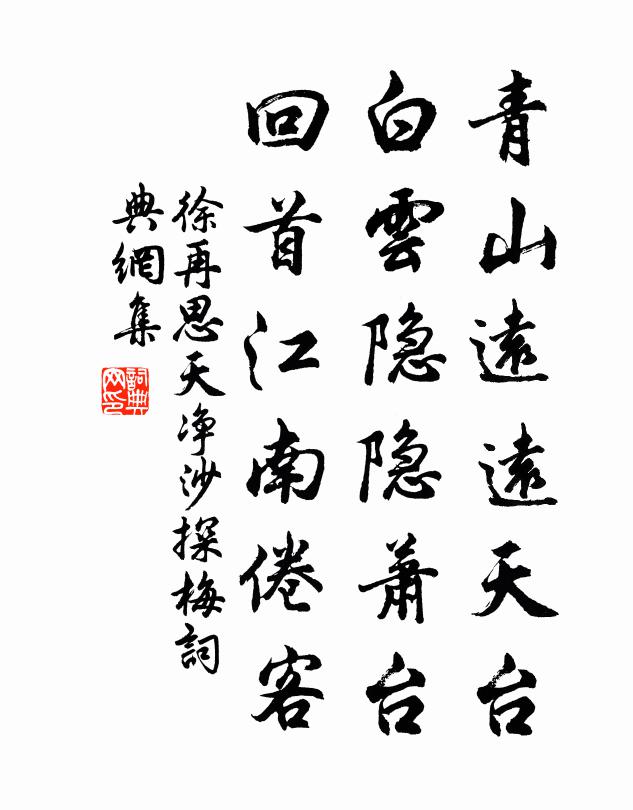 青山遠遠天台
白雲隐隐蕭台
回首江南倦客
徐再思天净沙探梅詞
典網集
詞典網印